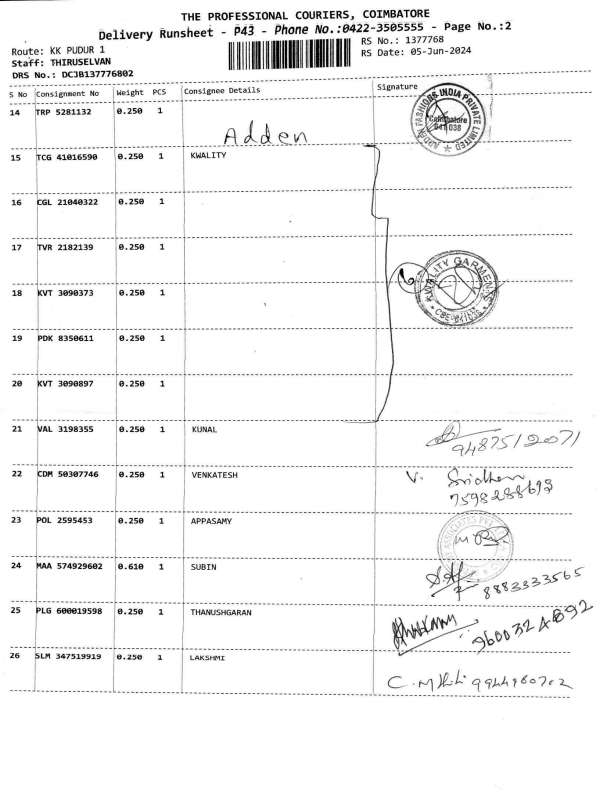 THE PROFESSIONAL COURIERS, COIMBATORE
Delivery Runsheet - P43 - Phone No.:0422-3505555 - Page No.:2
Route: KK PUDUR 1
RS No.: 1377768
Staff: THIRUSELVAN
RS Date: 05-Jun-2024
DRS No.: DCJB137776802
S No Consignment No Weight PCS Consignee Details Signature
14 TRP 5281132 0.250 1
Adden
ADDEN FASHIONS INDIA PRIVATE LIMITED
Coimbatore
641 038
15 TCG 41016590 0.250 1 KWALITY
16 CGL 21040322 0.250 1
17 TVR 2182139 0.250 1
6 KWALITY GARMENTS
18 KVT 3090373 0.250 1
19 PDK 8350611 0.250 1
20 KVT 3090897 0.250 1
21 VAL 3198355 0.250 1 KUNAL
9487512071
22 CDM 50307746 0.250 1 VENKATESH V. Sridhen
7598288693
23 POL 2595453 0.250 1 APPASAMY
24 MAA 574929602 0.610 1 SUBIN
8883333565
25 PLG 600019598 0.250 1 THANUSHGARAN
26 SLM 347519919 0.250 1 LAKSHMI
9944960702